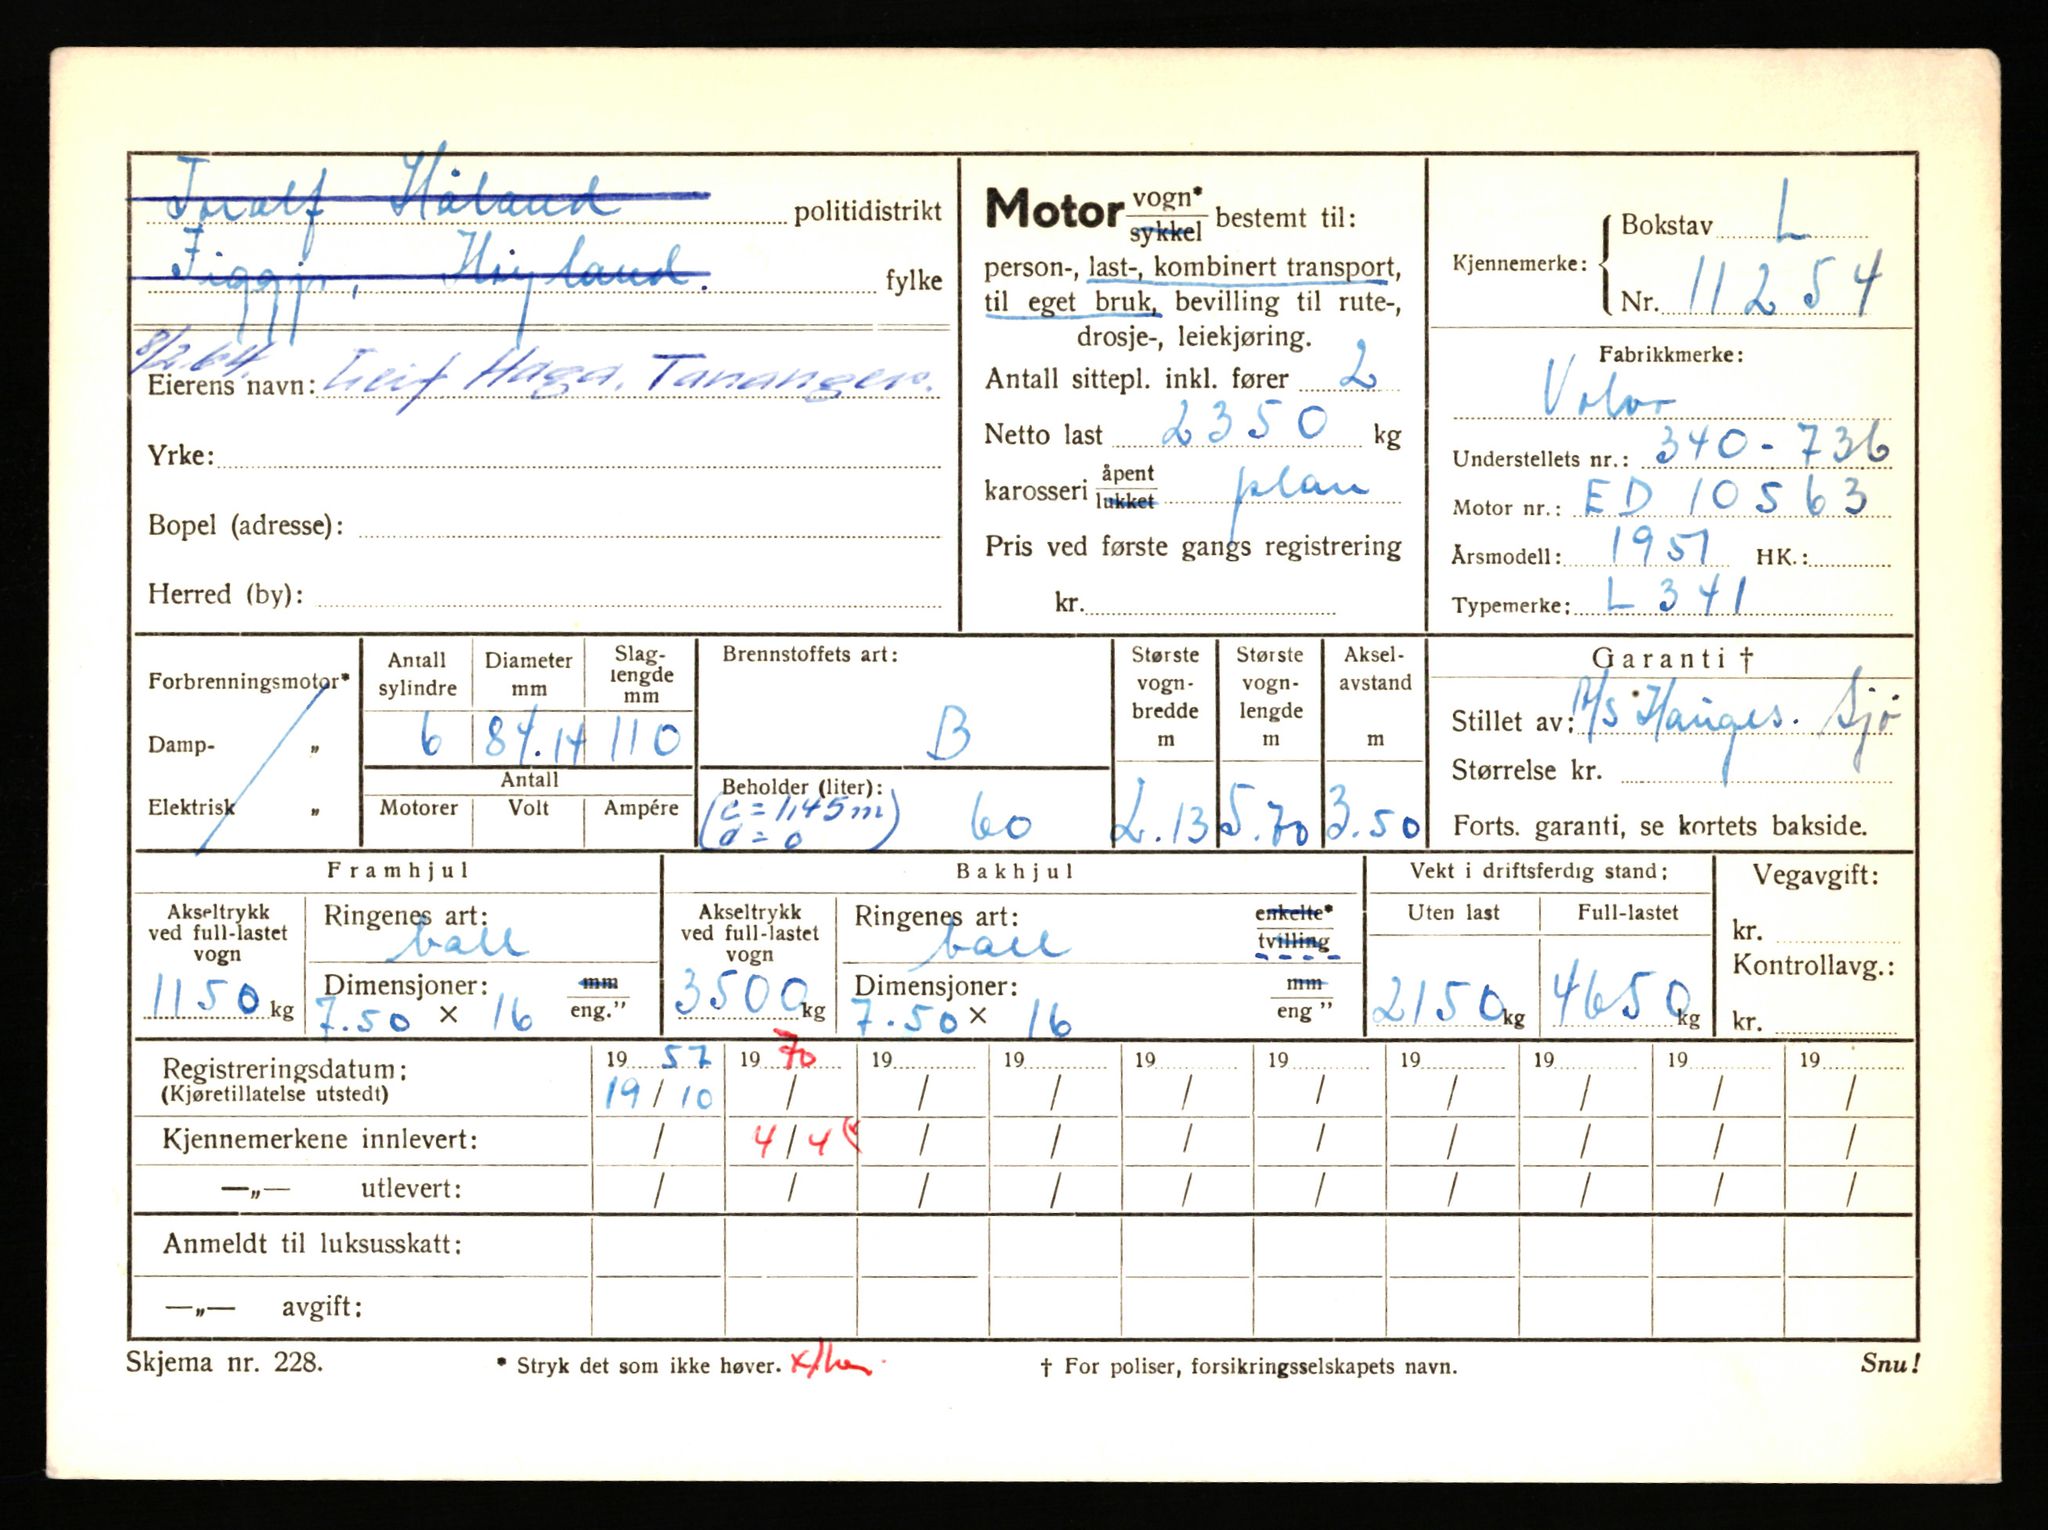 Toralf Håland politidistrikt
Figgjo, Høyland. fylke
8/2.64.
Eierens navn: Leif Haga, Tananger.
Yrke:
Bopel (adresse):
Herred (by):
Motor vogn* sykkel bestemt til:
person-, last-, kombinert transport,
til eget bruk, bevilling til rute-,
drosje-, leiekjøring.
Antall sittepl. inkl. fører 2
Netto last 2350 kg
karosseri åpent lukket plan
Pris ved første gangs registrering
kr.
Kjennemerke: Bokstav L
Nr. 11254
Fabrikkmerke:
Volvo
Understellets nr.: 340-736
Motor nr.: ED 10563
Årsmodell: 1951 HK.:
Typemerke: L 341
Forbrenningsmotor*
Damp- „
Elektrisk „
Antall sylindre
6
Diameter mm
84.14
Slag-lengde mm
110
Antall
Motorer Volt Ampére
Brennstoffets art:
B
Beholder (liter):
(c = 1,45 m
d = 0) 60
Største vogn-bredde m
2.13
Største vogn-lengde m
5.70
Aksel-avstand m
3.50
Garanti †
Stillet av: A/S Hauges. Sjö
Størrelse kr.
Forts. garanti, se kortets bakside.
Framhjul
Akseltrykk ved full-lastet vogn
1150 kg
Ringenes art:
ball
Dimensjoner: mm
7.50 x 16 eng."
Bakhjul
Akseltrykk ved full-lastet vogn
3500 kg
Ringenes art: enkelte*
ball tvilling
Dimensjoner: mm
7.50 x 16 eng"
Vekt i driftsferdig stand:
Uten last Full-lastet
2150 kg 4650 kg
Vegavgift:
kr.
Kontrollavg.:
kr.
Registreringsdatum: 19 57 19 70 19 19 19 19 19 19 19 19
(Kjøretillatelse utstedt) 19/10 / / / / / / / / /
Kjennemerkene innlevert: / 4/4 / / / / / / / /
—„— utlevert: / / / / / / / / / /
Anmeldt til luksusskatt:
—„— avgift:
Skjema nr. 228.
* Stryk det som ikke høver.
† For poliser, forsikringsselskapets navn.
Snu!